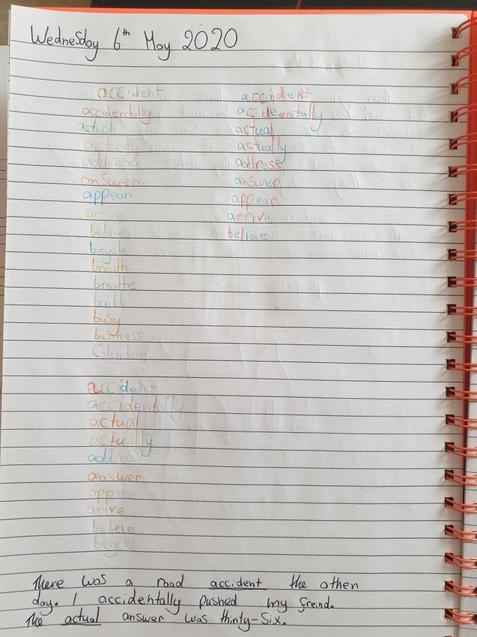 Wednesday 6th May 2020
accident
accidentally
actual
actually
address
answer
appear
arrive
believe
bicycle
breath
breathe
build
busy
business
Calendar
accident
accidentally
actual
actually
address
answer
appear
arrive
believe
accident
accidentally
actual
actually
address
answer
appear
arive
believe
bicycle
There was a road accident the other
day. I accidentally pushed my freind.
The actual answer was thirty-Six.